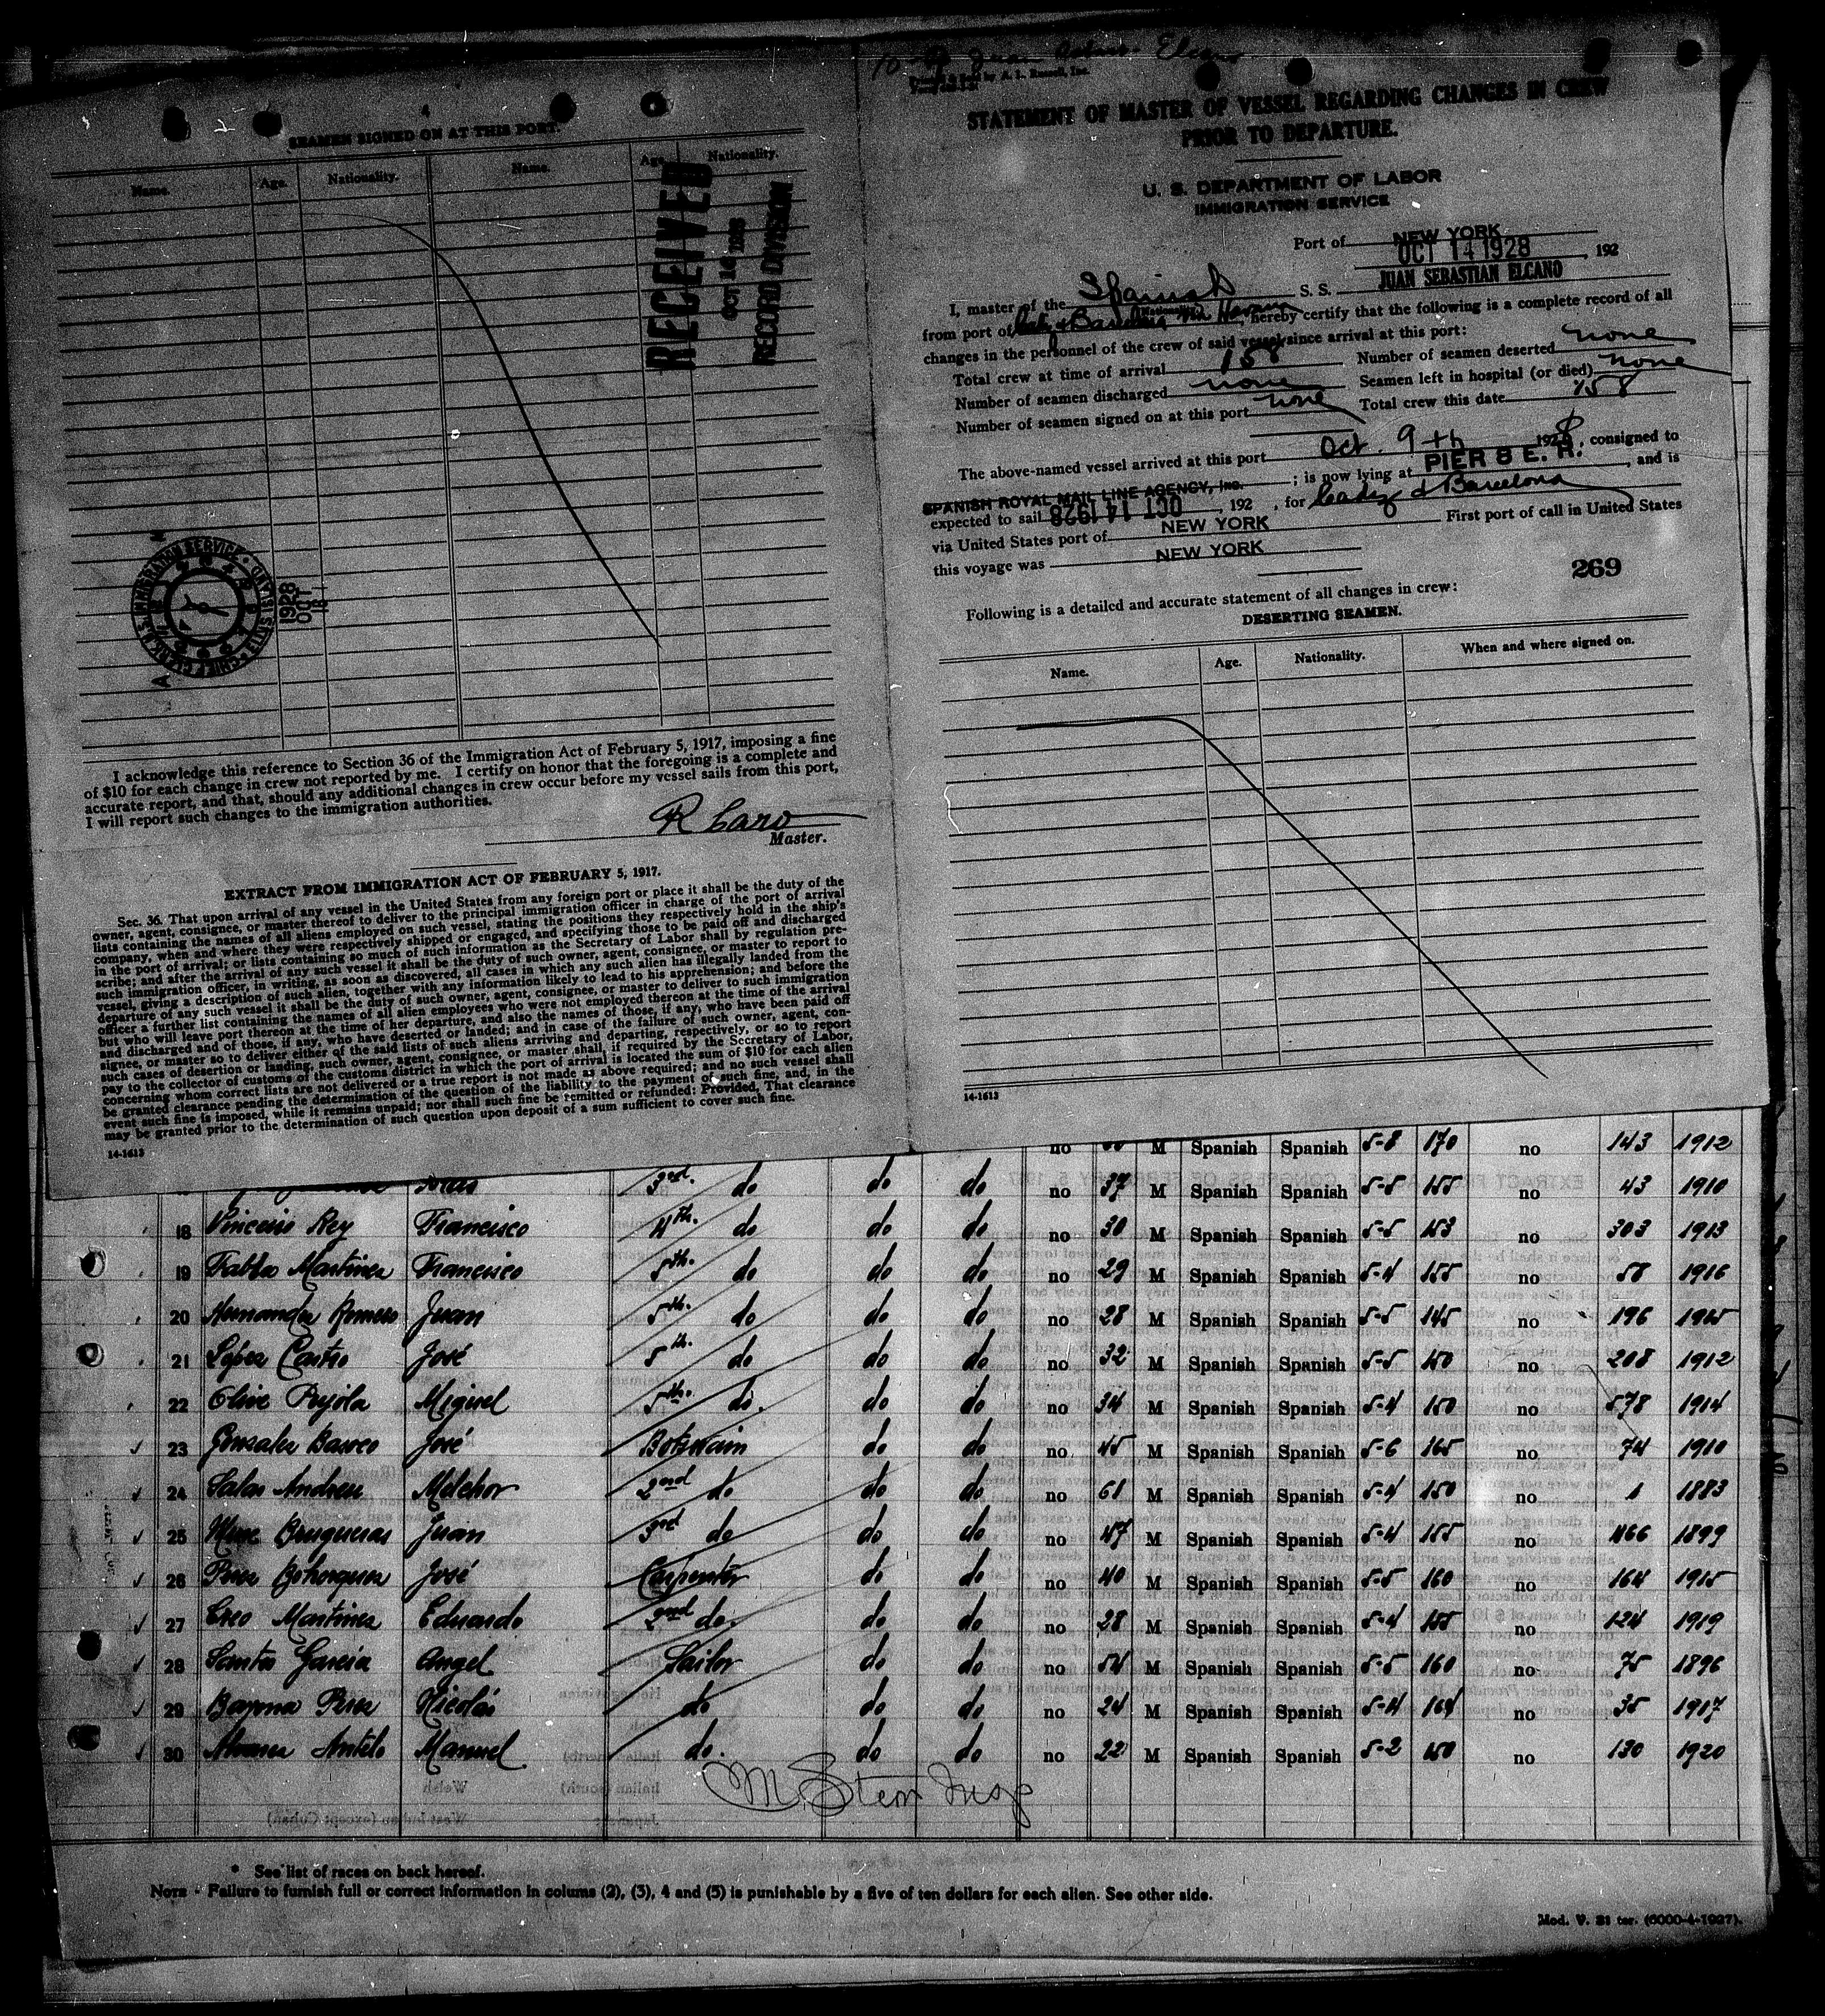 4
SEAMEN SIGNED ON AT THIS PORT.
Name. Age. Nationality. Name. Age. Nationality.
RECEIVED
OCT 16 1928
RECORD DIVISION
1928
OCT
I acknowledge this reference to Section 36 of the Immigration Act of February 5, 1917, imposing a fine
of $10 for each change in crew not reported by me. I certify on honor that the foregoing is a complete and
accurate report, and that, should any additional changes in crew occur before my vessel sails from this port,
I will report such changes to the immigration authorities.
R Caro
Master.
EXTRACT FROM IMMIGRATION ACT OF FEBRUARY 5, 1917.
Sec. 36. That upon arrival of any vessel in the United States from any foreign port or place it shall be the duty of the
owner, agent, consignee, or master thereof to deliver to the principal immigration officer in charge of the port of arrival
lists containing the names of all aliens employed on such vessel, stating the positions they respectively hold in the ship's
company, when and where they were respectively shipped or engaged, and specifying those to be paid off and discharged
in the port of arrival; or lists containing so much of such information as the Secretary of Labor shall by regulation pre-
scribe; and after the arrival of any such vessel it shall be the duty of such owner, agent, consignee, or master to report to
such immigration officer, in writing, as soon as discovered, all cases in which any such alien has illegally landed from the
vessel, giving a description of such alien, together with any information likely to lead to his apprehension; and before the
departure of any such vessel it shall be the duty of such owner, agent, consignee, or master to deliver to such immigration
officer a further list containing the names of all alien employees who were not employed thereon at the time of the arrival
but who will leave port thereon at the time of her departure, and also the names of those, if any, who have been paid off
and discharged and of those, if any, who have deserted or landed; and in case of the failure of such owner, agent, con-
signee, or master so to deliver either of the said lists of such aliens arriving and departing, respectively, or so to report
such cases of desertion or landing, such owner, agent, consignee, or master shall, if required by the Secretary of Labor,
pay to the collector of customs of the customs district in which the port of arrival is located the sum of $10 for each alien
concerning whom correct lists are not delivered or a true report is not made as above required; and no such vessel shall
be granted clearance pending the determination of the question of the liability to the payment of such fine, and, in the
event such fine is imposed, while it remains unpaid; nor shall such fine be remitted or refunded: Provided, That clearance
may be granted prior to the determination of such question upon deposit of a sum sufficient to cover such fine.
14-1613
Elcano
STATEMENT OF MASTER OF VESSEL REGARDING CHANGES IN CREW
PRIOR TO DEPARTURE.
U. S. DEPARTMENT OF LABOR
IMMIGRATION SERVICE
Port of NEW YORK
OCT 14 1928, 192
I, master of the Spanish S. S. JUAN SEBASTIAN ELCANO
from port of Cadiz & Barcelona via Havana hereby certify that the following is a complete record of all
changes in the personnel of the crew of said vessel since arrival at this port:
Total crew at time of arrival 158 Number of seamen deserted none
Number of seamen discharged none Seamen left in hospital (or died) none
Number of seamen signed on at this port none Total crew this date 158
The above-named vessel arrived at this port Oct. 9th 1928, consigned to
SPANISH ROYAL MAIL LINE AGENCY, Inc. ; is now lying at PIER 8 E. R. , and is
expected to sail OCT 14 1928, 192 , for Cadiz & Barcelona
via United States port of NEW YORK First port of call in United States
this voyage was NEW YORK
269
Following is a detailed and accurate statement of all changes in crew:
DESERTING SEAMEN.
Name. Age. Nationality. When and where signed on.
14-1613
no M Spanish Spanish 5-8 170 no 143 1912
3rd. do do do no 37 M Spanish Spanish 5-5 155 no 43 1910
18 Rey Francisco 4th. do do do no 30 M Spanish Spanish 5-5 153 no 303 1913
19 Martinez Francisco 5th. do do do no 29 M Spanish Spanish 5-4 155 no 58 1916
20 Hernandez Romero Juan 5th. do do do no 28 M Spanish Spanish 5-5 145 no 196 1915
21 López Castro José 5th. do do do no 32 M Spanish Spanish 5-5 150 no 208 1912
22 Olive Pujola Miguel 5th. do. do do no 34 M Spanish Spanish 5-4 150 no 578 1914
23 Gonzalez José Botswain do do no 45 M Spanish Spanish 5-6 165 no 74 1910
24 Salas Andreu Melchor 2nd do do do no 61 M Spanish Spanish 5-4 150 no 1 1883
25 Brugueras Juan 3rd do do do no 47 M Spanish Spanish 5-4 155 no 466 1899
26 Perez Bohorquez José Carpenter do do no 40 M Spanish Spanish 5-5 160 no 164 1915
27 Creo Martinez Eduardo 2nd do. do do no 28 M Spanish Spanish 5-4 155 no 124 1919
28 Santos Garcia Angel Sailor do do no 54 M Spanish Spanish 5-5 160 no 75 1896
29 Bayona Perez Nicolás do do do no 24 M Spanish Spanish 5-4 164 no 35 1917
30 Alvarez Antelo Manuel do. do do no 22 M Spanish Spanish 5-2 150 no 130 1920
M. Stern Insp
* See list of races on back hereof.
Nora - Failure to furnish full or correct information in colums (2), (3), 4 and (5) is punishable by a five of ten dollars for each alien. See other side.
Mod. V. 81 ter. (6000-4-1927).